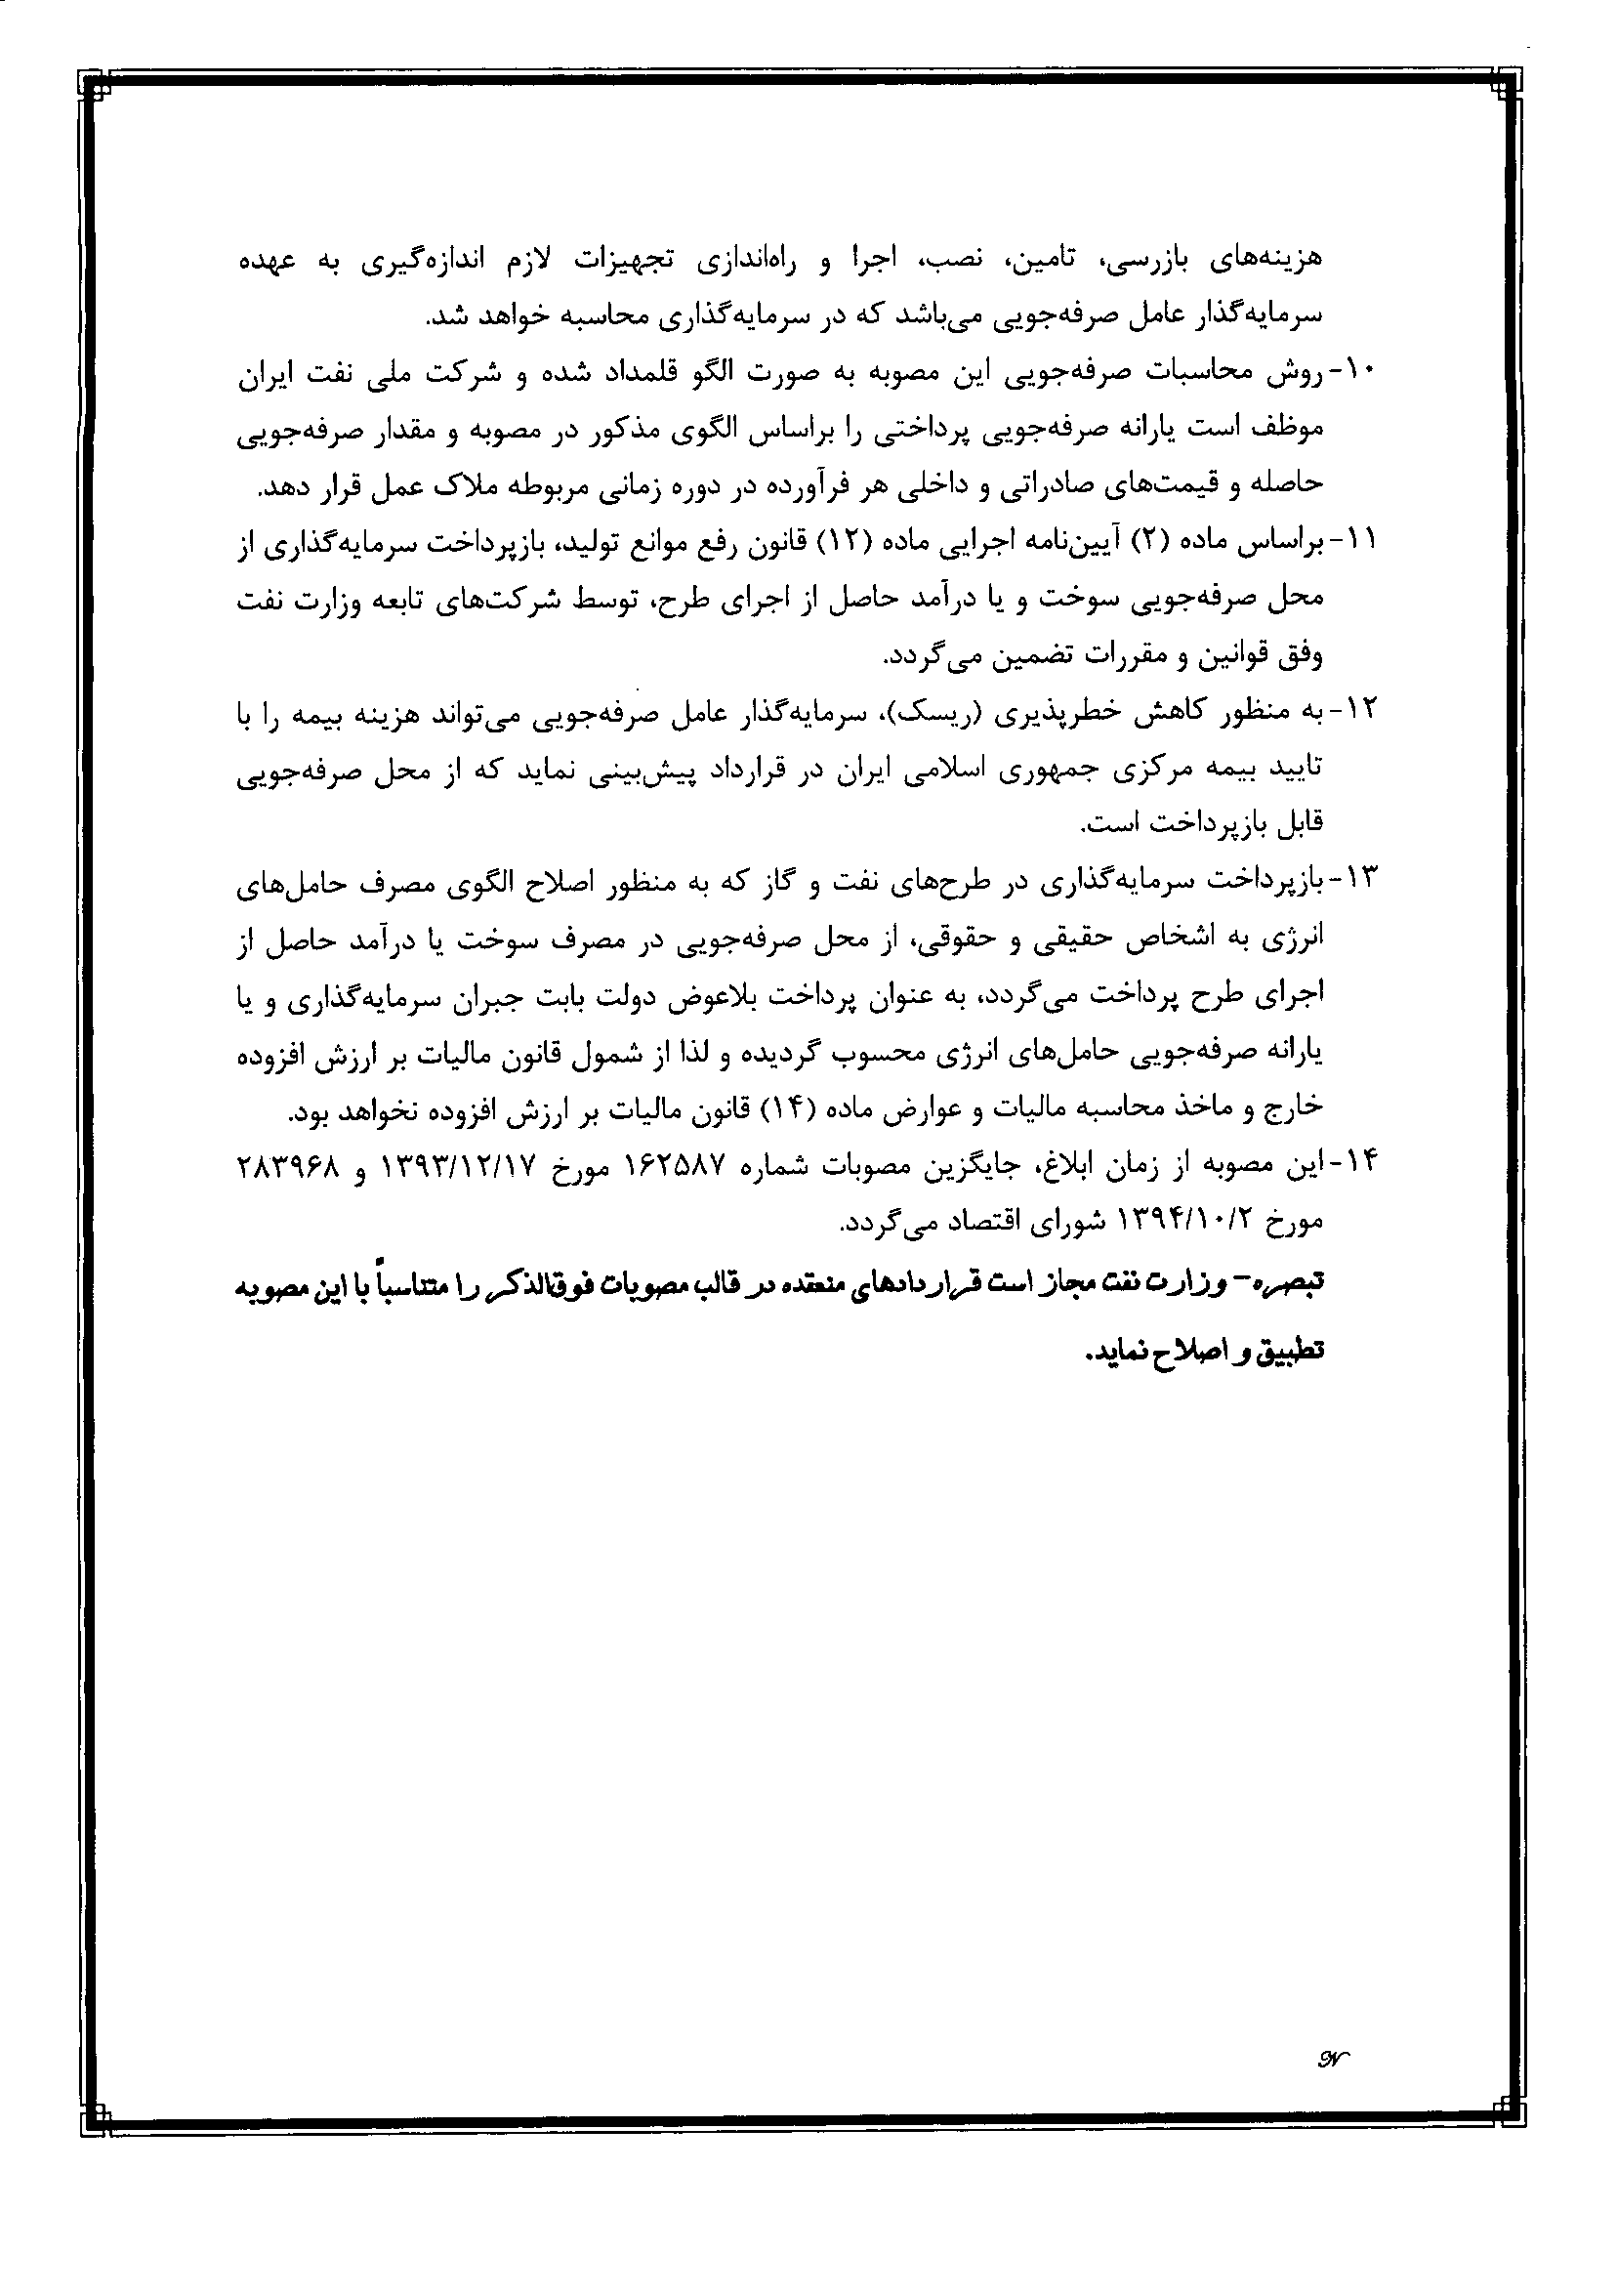 هزینه‌های بازرسی، تامین، نصب، اجرا و راه‌اندازی تجهیزات لازم اندازه‌گیری به عهده
سرمایه‌گذار عامل صرفه‌جویی می‌باشد که در سرمایه‌گذاری محاسبه خواهد شد.
۱۰- روش محاسبات صرفه‌جویی این مصوبه به صورت الگو قلمداد شده و شرکت ملی نفت ایران
موظف است یارانه صرفه‌جویی پرداختی را براساس الگوی مذکور در مصوبه و مقدار صرفه‌جویی
حاصله و قیمت‌های صادراتی و داخلی هر فرآورده در دوره زمانی مربوطه ملاک عمل قرار دهد.
۱۱- براساس ماده (۲) آیین‌نامه اجرایی ماده (۱۲) قانون رفع موانع تولید، بازپرداخت سرمایه‌گذاری از
محل صرفه‌جویی سوخت و یا درآمد حاصل از اجرای طرح، توسط شرکت‌های تابعه وزارت نفت
وفق قوانین و مقررات تضمین می‌گردد.
۱۲- به منظور کاهش خطرپذیری (ریسک)، سرمایه‌گذار عامل صرفه‌جویی می‌تواند هزینه بیمه را با
تایید بیمه مرکزی جمهوری اسلامی ایران در قرارداد پیش‌بینی نماید که از محل صرفه‌جویی
قابل بازپرداخت است.
۱۳- بازپرداخت سرمایه‌گذاری در طرح‌های نفت و گاز که به منظور اصلاح الگوی مصرف حامل‌های
انرژی به اشخاص حقیقی و حقوقی، از محل صرفه‌جویی در مصرف سوخت یا درآمد حاصل از
اجرای طرح پرداخت می‌گردد، به عنوان پرداخت بلاعوض دولت بابت جبران سرمایه‌گذاری و یا
یارانه صرفه‌جویی حامل‌های انرژی محسوب گردیده و لذا از شمول قانون مالیات بر ارزش افزوده
خارج و ماخذ محاسبه مالیات و عوارض ماده (۱۴) قانون مالیات بر ارزش افزوده نخواهد بود.
۱۴- این مصوبه از زمان ابلاغ، جایگزین مصوبات شماره ۱۶۲۵۸۷ مورخ ۱۳۹۳/۱۲/۱۷ و ۲۸۳۹۶۸
مورخ ۱۳۹۴/۱۰/۲ شورای اقتصاد می‌گردد.
تبصره- وزارت نفت مجاز است قراردادهای منعقده در قالب مصوبات فوق‌الذکر را متناسباً با این مصوبه
تطبیق و اصلاح نماید.